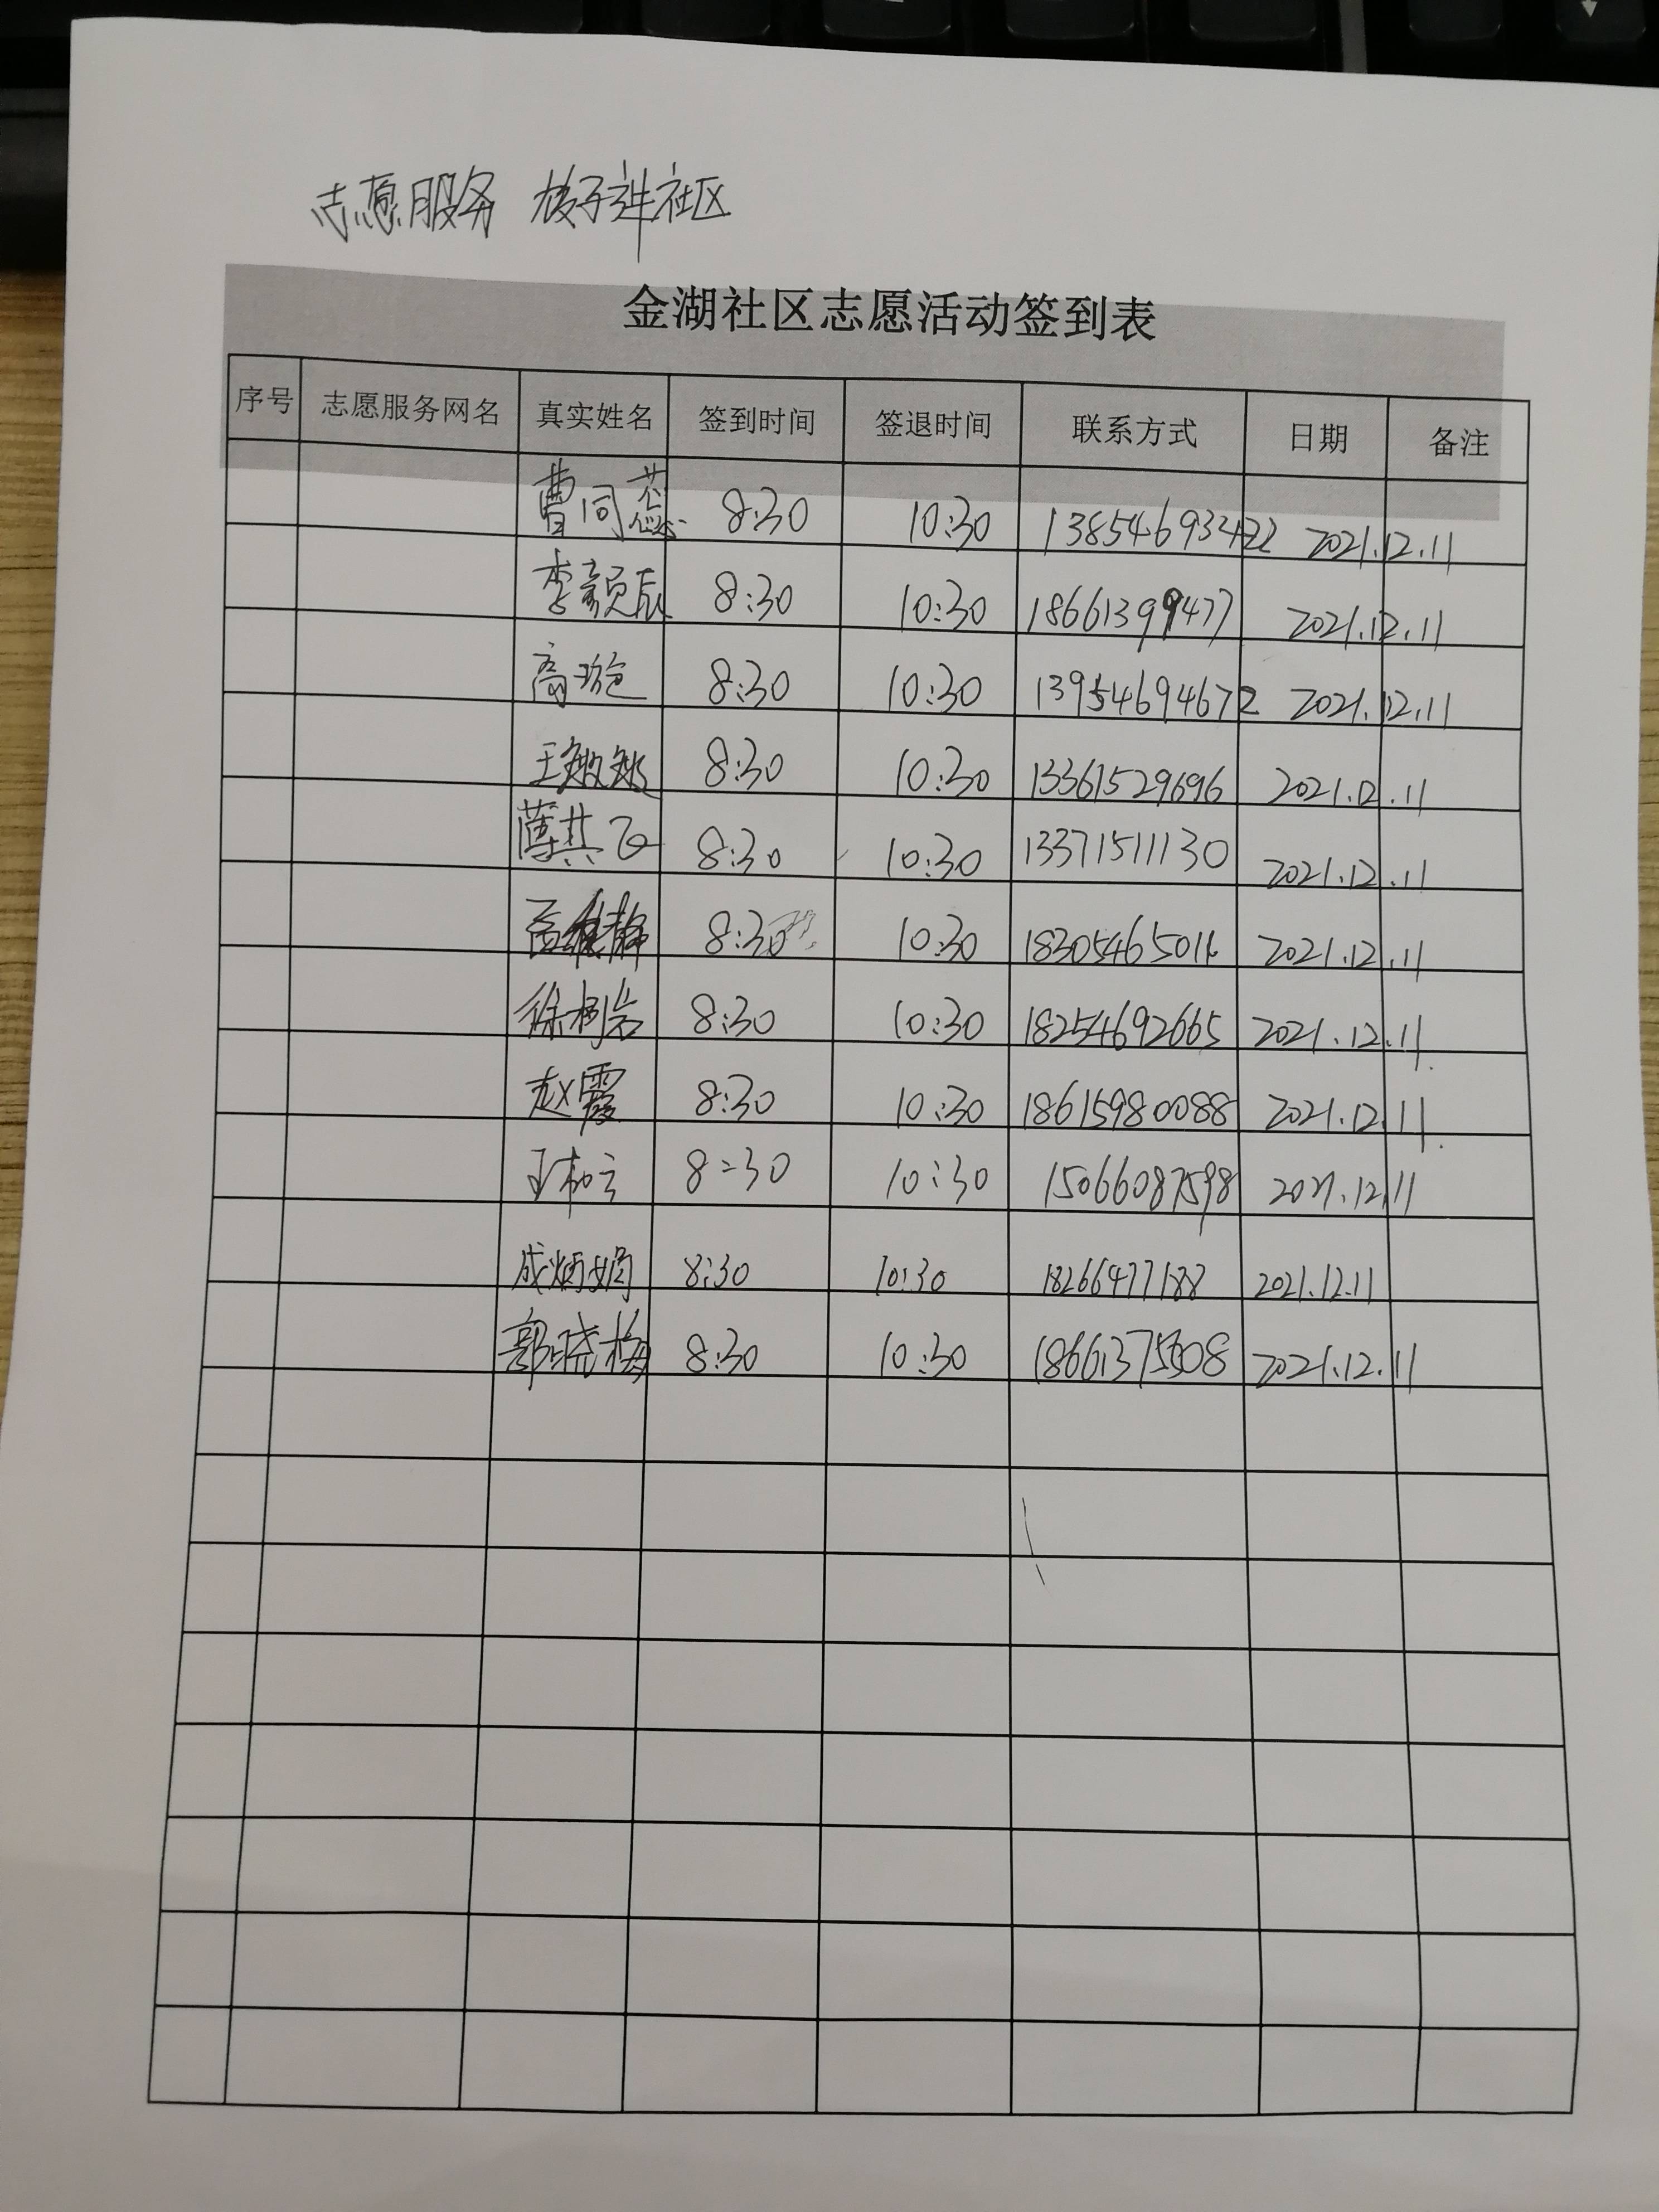 志愿服务 孩子进社区
金湖社区志愿活动签到表
序号 志愿服务网名 真实姓名 签到时间 签退时间 联系方式 日期 备注
曹同蕊 8:30 10:30 2021.12.11
李颖辰 8:30 10:30 18661399477 2021.12.11
高璇 8:30 10:30 13954694672 2021.12.11
王敏敏 8:30 10:30 13361529696 2021.12.11
薄其飞 8:30 10:30 13371511130 2021.12.11
孟维静 8:30 10:30 2021.12.11
徐树岩 8:30 10:30 18254692665 2021.12.11
赵霞 8:30 10:30 18615980088 2021.12.11
8:30 10:30 15066087598 2021.12.11
成炳娟 8:30 10:30 18266477188 2021.12.11
郭晓梅 8:30 10:30 2021.12.11